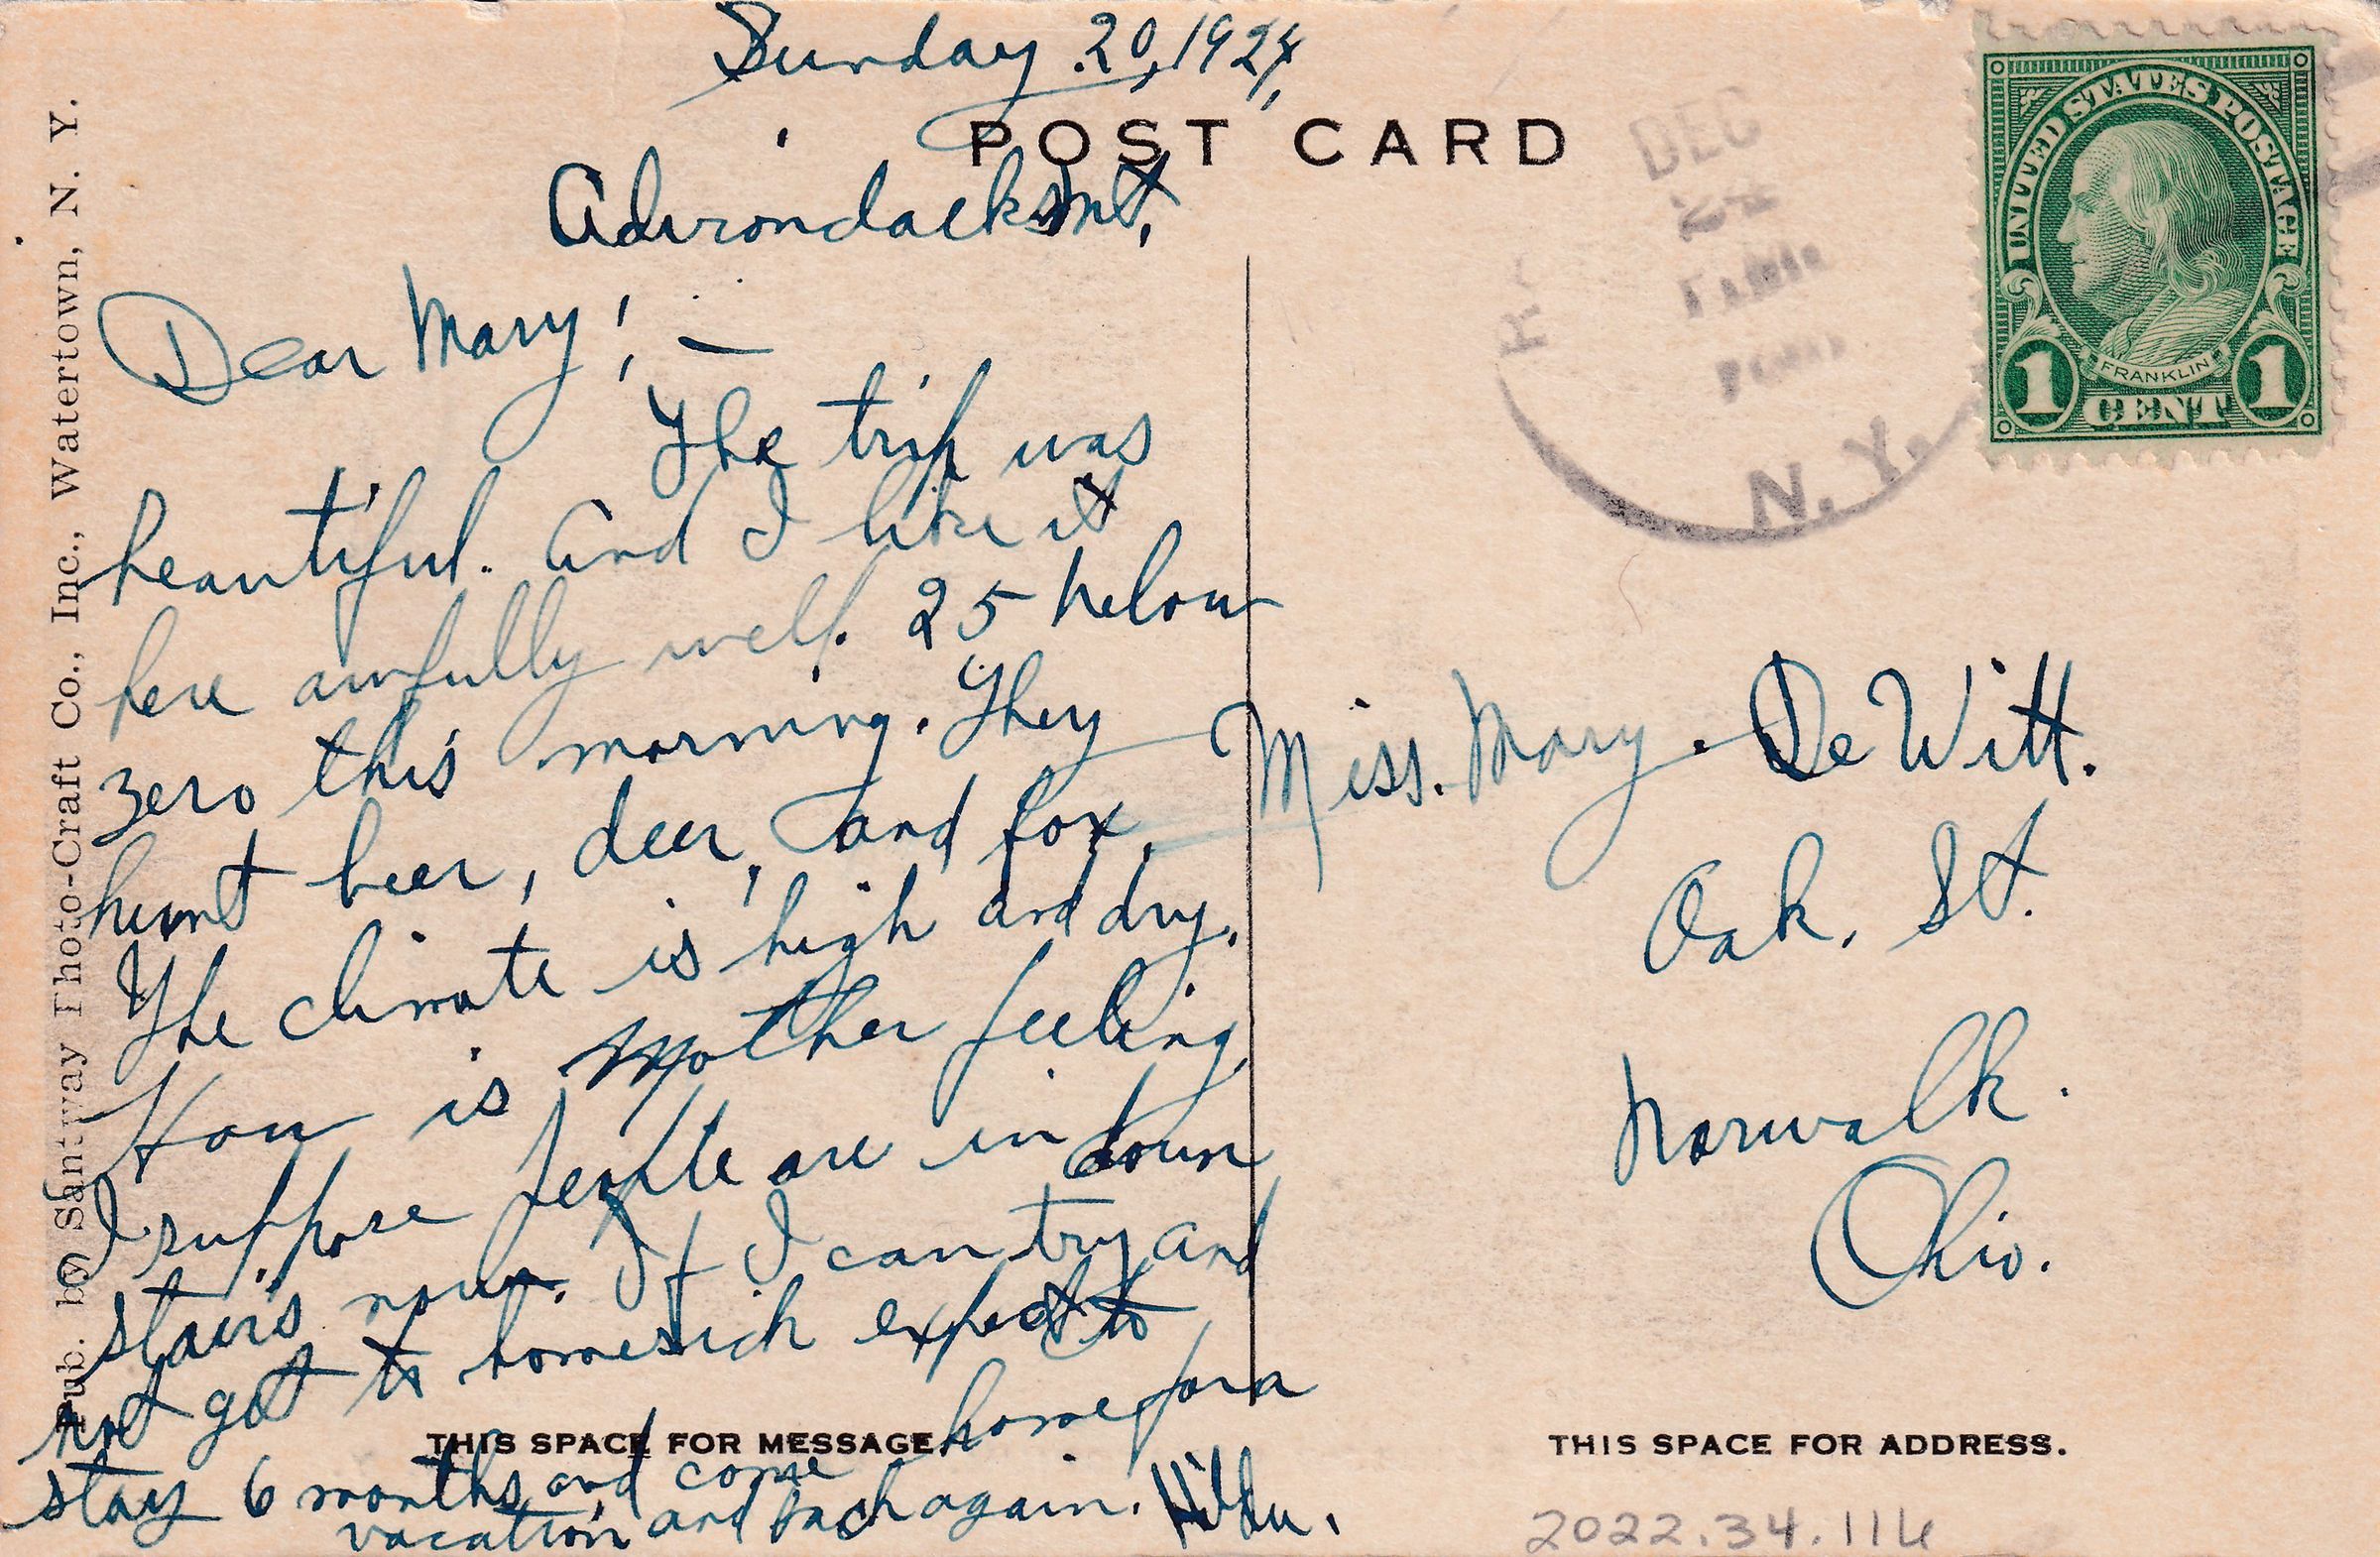 Sunday .20, 1924,
POST CARD
Adirondacks Mt,
DEC
N. Y.
UNITED STATES POSTAGE
FRANKLIN
1 CENT 1
Dear Mary! —
The trip was
beautiful. And I like it
here awfully well. 25 below
zero this morning. They
hunt beer, deer, and fox.
The climate is high and dry.
How is Mother feeling,
I suppose people are in down
stairs now. If I can try and
not got to homesick expect to
stay 6 months and come home for a
vacation and back again.
Miss. Mary. DeWitt.
Oak. St.
Norwalk.
Ohio.
THIS SPACE FOR MESSAGE.
THIS SPACE FOR ADDRESS.
2022.34.116
Pub. by Santway Photo-Craft Co., Inc., Watertown, N. Y.